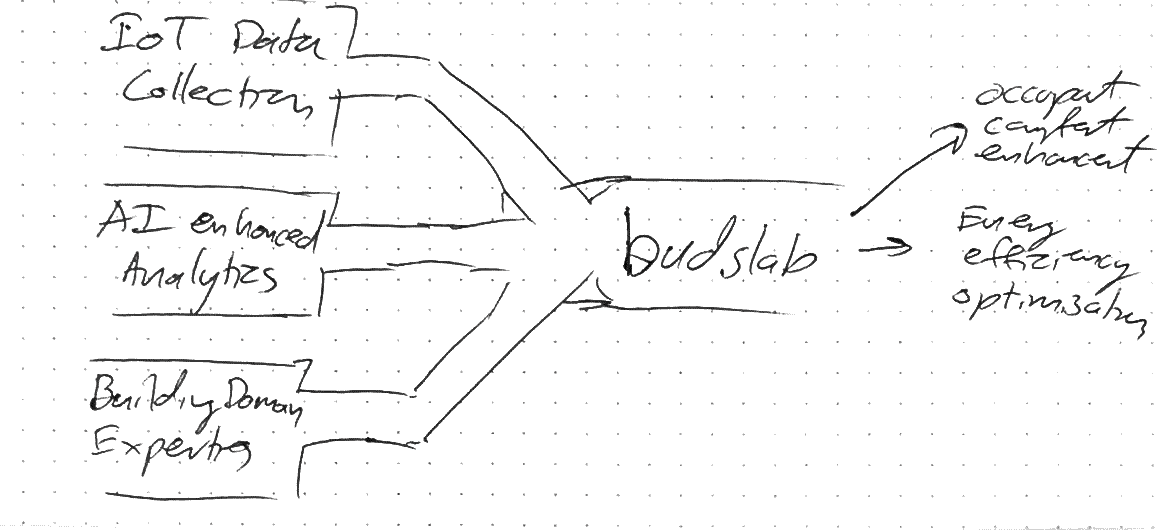 IoT Data
Collection
AI enhanced
Analytics
Building Domain
Expertise
budslab
occupant
comfort
enhancent
Energy
efficiency
optimization